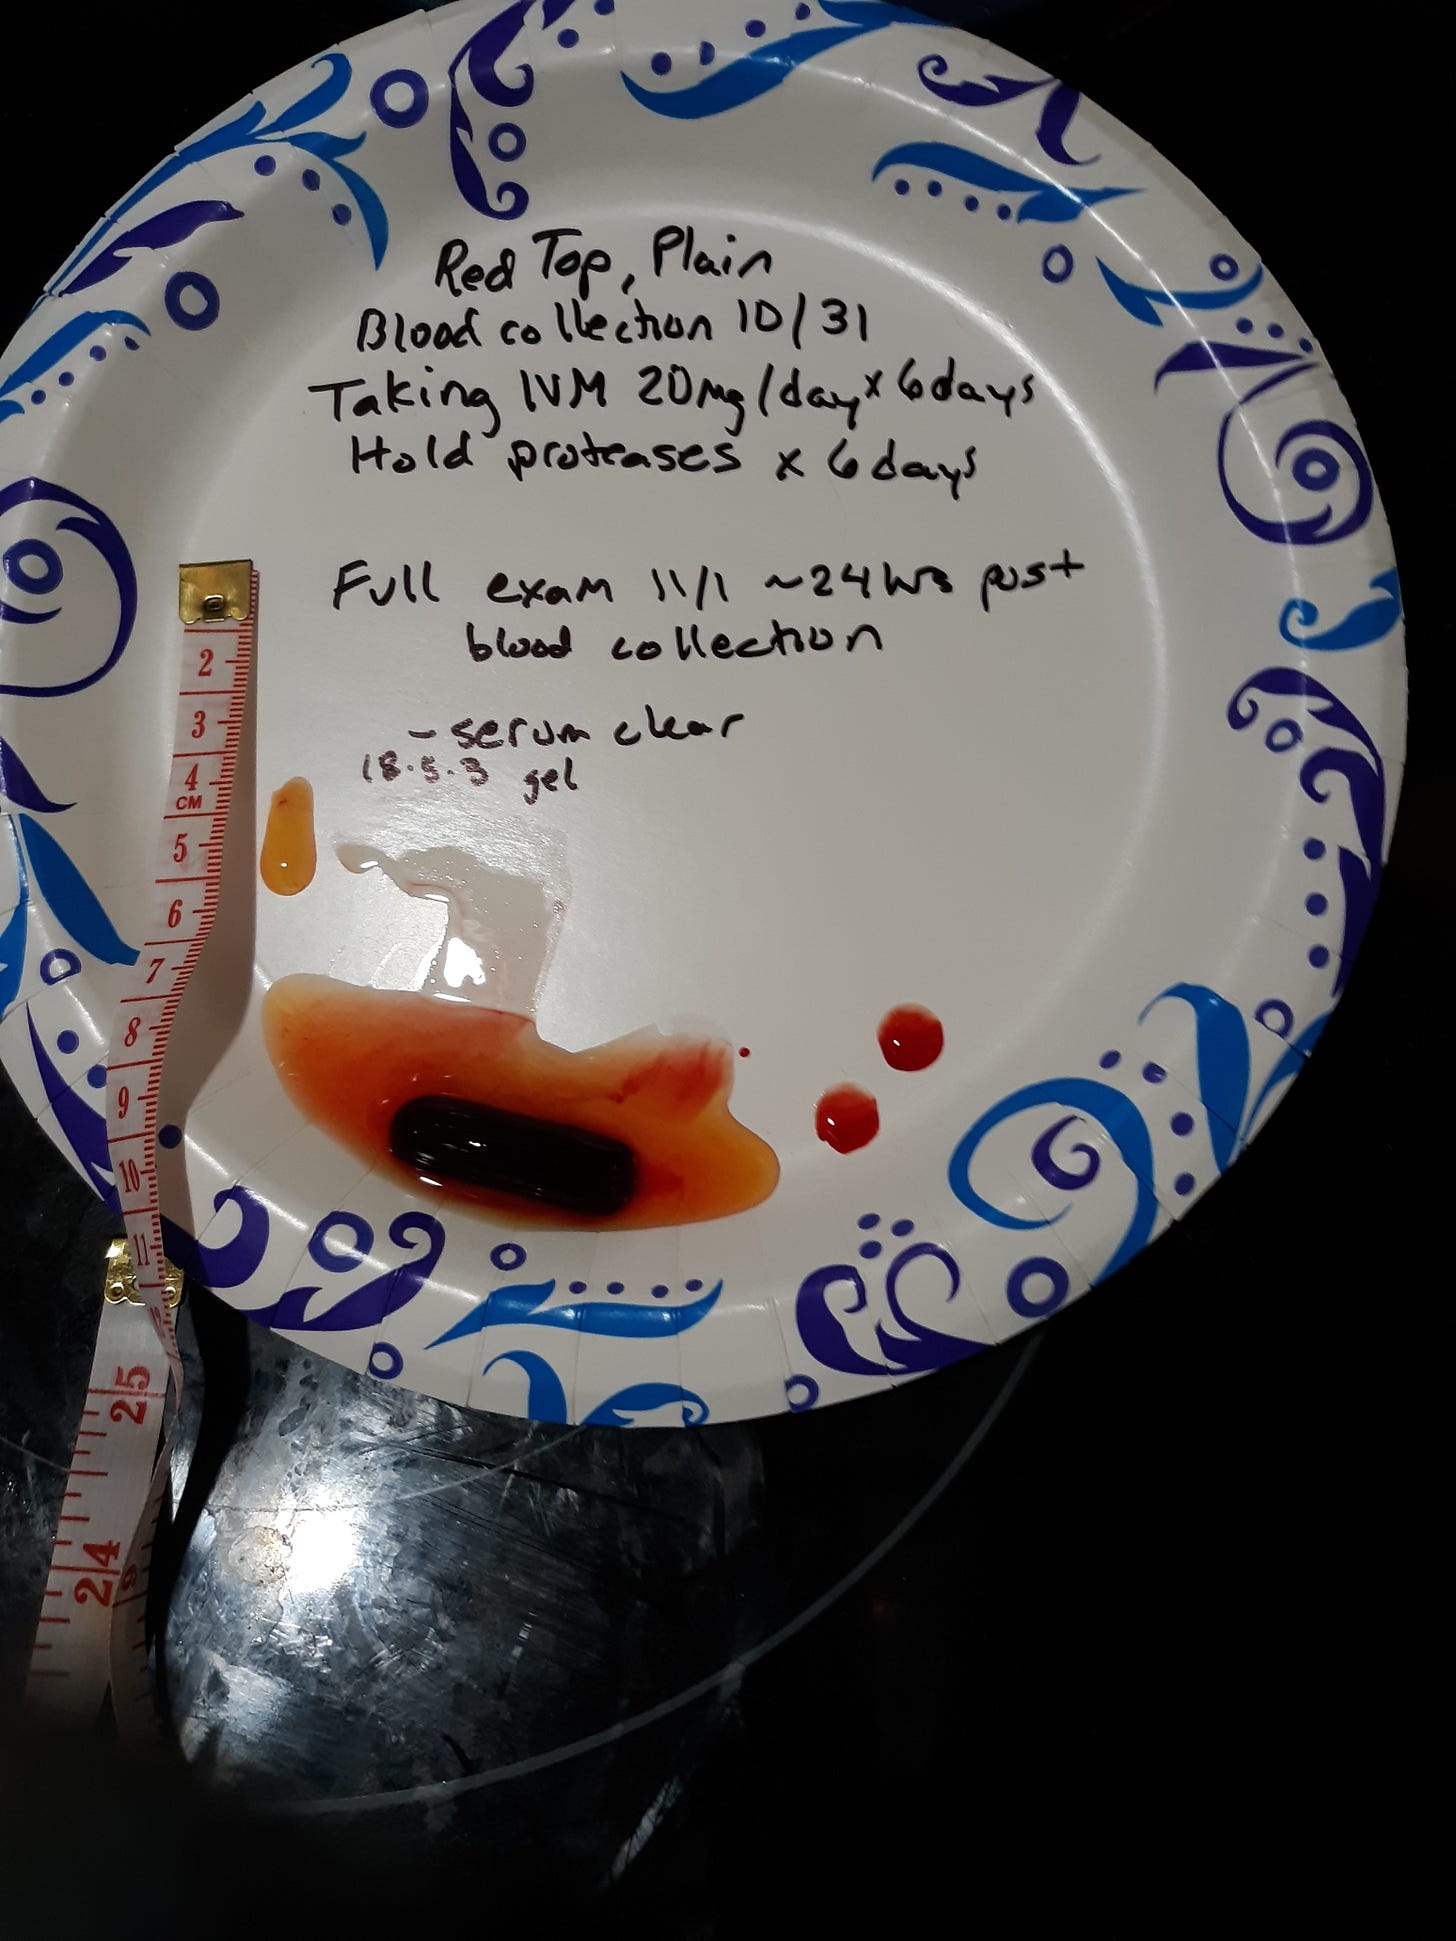 Red Top, Plain
Blood collection 10/31
Taking IVM 20mg/day x 6 days
Hold proteases x 6 days
Full exam 11/1 ~24 hrs post
blood collection
- serum clear
18.5.3 gel
2
3
4
CM
5
6
7
8
9
10
11
25
24